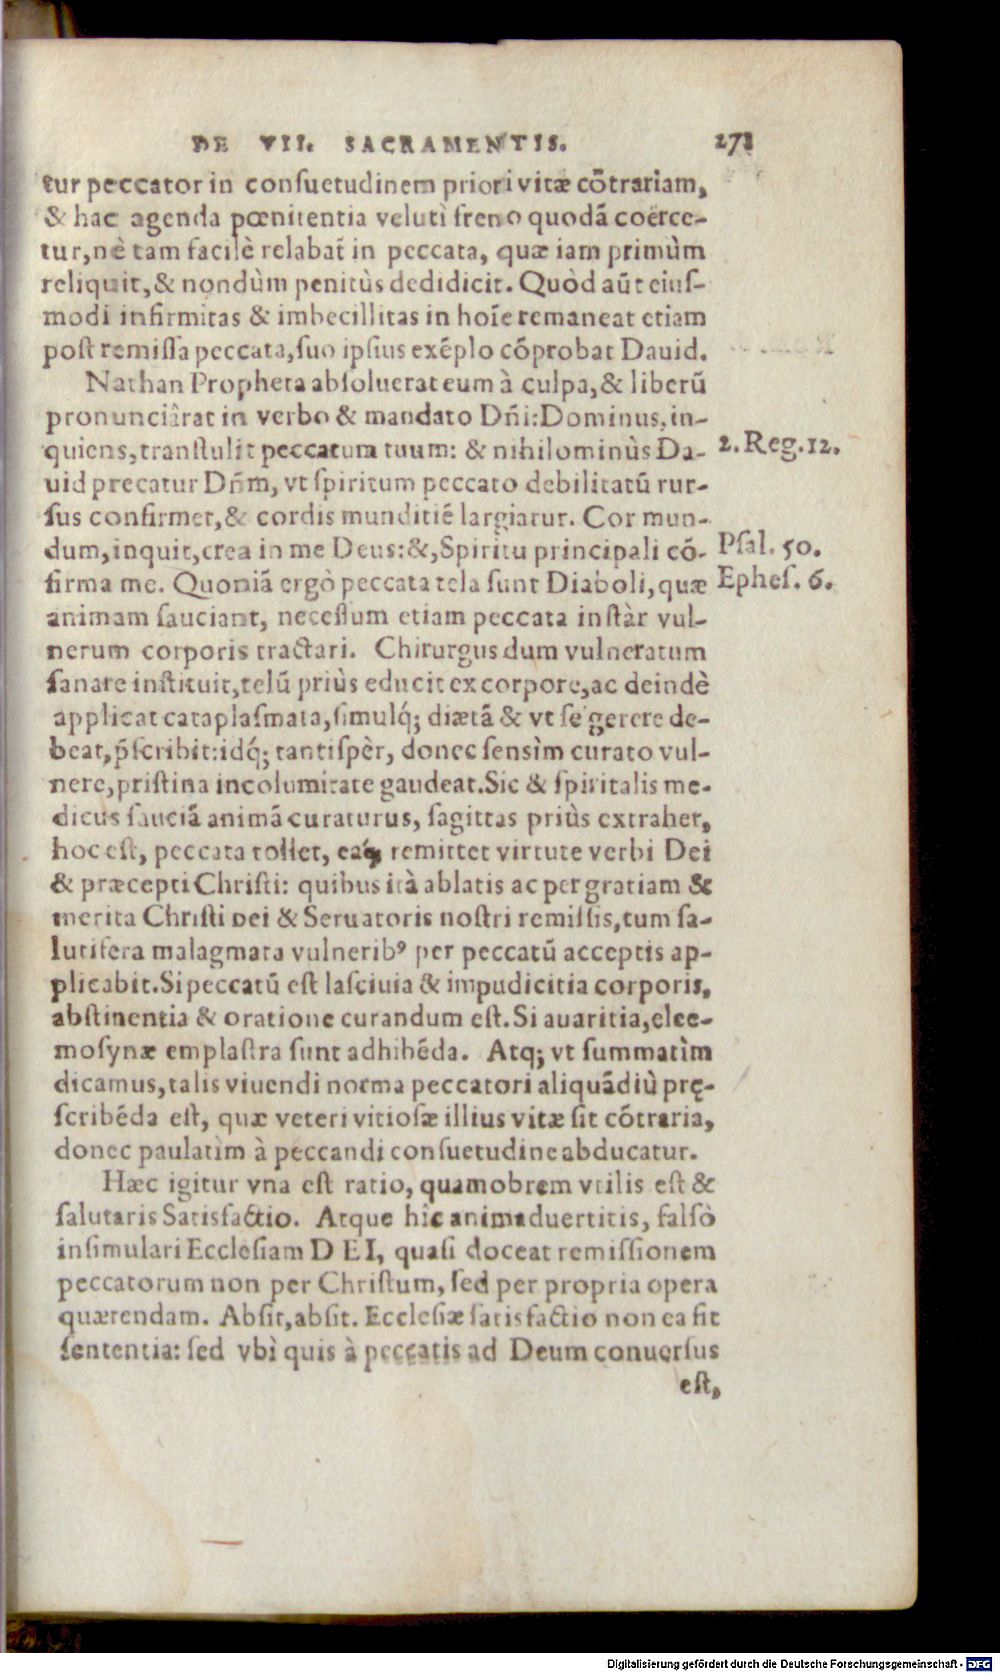 DE VII. SACRAMENTIS. 271
tur peccator in consuetudinem priori vitæ cõtrariam,
& hac agenda pœnitentia velutì freno quodã coërce-
tur, nè tam facilè relabat̃ in peccata, quæ iam primùm
reliquit, & nondùm penitùs dedidicit. Quòd aũt eius-
modi infirmitas & imbecillitas in hoĩe remaneat etiam
post remissa peccata, suo ipsius exẽplo cõprobat Dauid.
Nathan Propheta absoluerat eum à culpa, & liberũ
pronunciârat in verbo & mandato Dñi: Dominus, in-
quiens, transtulit peccatum tuum: & nihilominùs Da-
2. Reg. 12.
uid precatur Dñm, vt spiritum peccato debilitatũ rur-
sus confirmet, & cordis munditiẽ largiatur. Cor mun-
dum, inquit, crea in me Deus: &, Spiritu principali cõ-
Psal. 50.
firma me. Quoniã ergò peccata tela sunt Diaboli, quæ
Ephes. 6.
animam sauciant, necessum etiam peccata instàr vul-
nerum corporis tractari. Chirurgus dum vulneratum
sanare instituit, telũ priùs educit ex corpore, ac deindè
applicat cataplasmata, simulq́; diætã & vt se gerere de-
beat, p̃scribit: idq́; tantispèr, donec sensìm curato vul-
nere, pristina incolumitate gaudeat. Sic & spiritalis me-
dicus sauciã animã curaturus, sagittas priùs extrahet,
hoc est, peccata tollet, eaq́; remittet virtute verbi Dei
& præcepti Christi: quibus ità ablatis ac per gratiam &
merita Christi Dei & Seruatoris nostri remissis, tum sa-
lutifera malagmata vulneribꝰ per peccatũ acceptis ap-
plicabit. Si peccatũ est lasciuia & impudicitia corporis,
abstinentia & oratione curandum est. Si auaritia, elee-
mosynæ emplastra sunt adhibẽda. Atq; vt summatìm
dicamus, talis viuendi norma peccatori aliquãdiù prę-
scribẽda est, quæ veteri vitiosæ illius vitæ sit cõtraria,
donec paulatìm à peccandi consuetudine abducatur.
Hæc igitur vna est ratio, quamobrem vtilis est &
salutaris Satisfactio. Atque hîc animaduertitis, falsò
insimulari Ecclesiam DEI, quasi doceat remissionem
peccatorum non per Christum, sed per propria opera
quærendam. Absit, absit. Ecclesiæ satisfactio non ea fit
sententia: sed vbì quis à peccatis ad Deum conuersus
est,
Digitalisierung gefördert durch die Deutsche Forschungsgemeinschaft - DFG